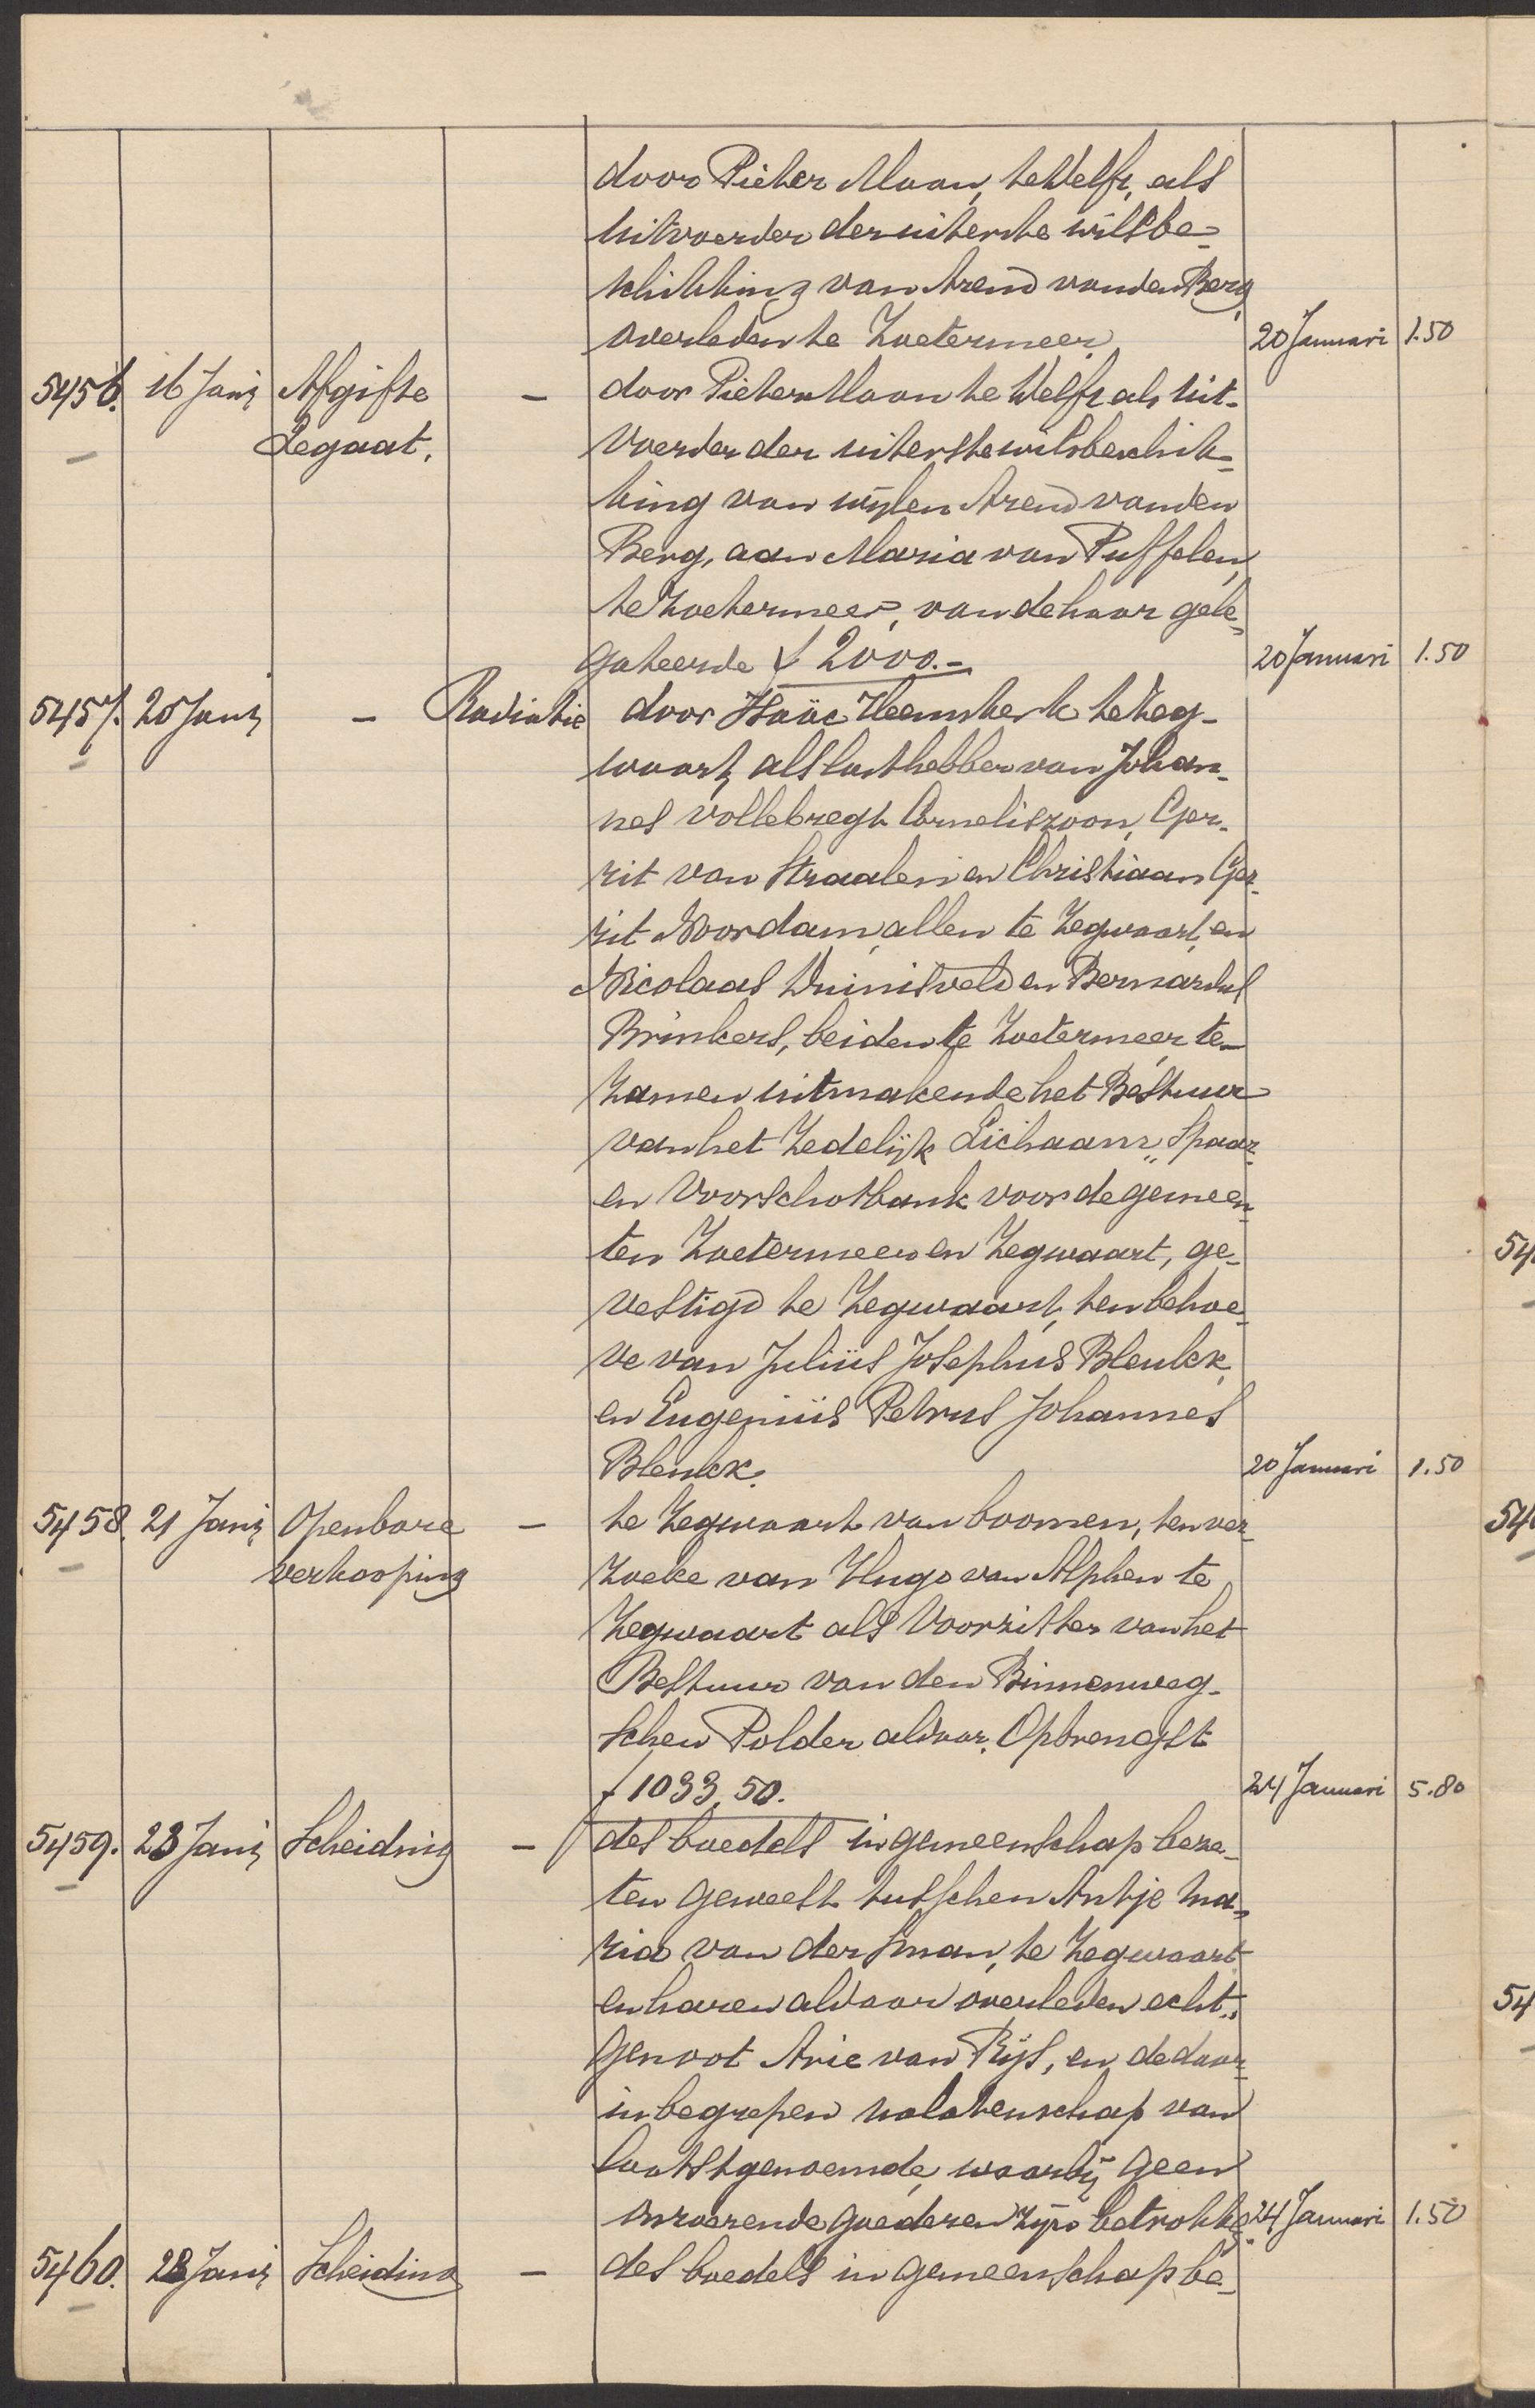 door Pieter Maan, te Delft, als
uitvoerder der uiterste wilsbe-
schikking van Arend van den Berg,
overleden te Zoetermeer. 20 Januari 1.50
5456. 16 Janij Afgifte - door Pieter Maan te Delft als uit-
Legaat. voerder der uiterste wilsbeschik-
king van wijlen Arend van den
Berg, aan Maria van Puffelen,
te Zoetermeer, van de haar gele-
gateerde f 2000.- 20 Januari 1.50
5457. 20 Janij - Radiatie door Isaäc Heemskerk te Zeg-
waart, als lasthebber van Johan-
nes Vollebregt Corneliszoon, Ger-
rit van Straalen en Christiaan Ger-
rit Noordam, allen te Zegwaart, en
Nicolaas Duinisveld en Bernardus
Brinkers, beiden te Zoetermeer, te-
zamen uitmakende het Bestuur
van het Zedelijk Lichaam „Spaar-
en Voorschotbank voor de gemeen-
ten Zoetermeer en Zegwaart, ge-
vestigd te Zegwaart, ten behoe-
ve van Juliüs Josephus Bleulck,
en Eugeniüs Petrus Johannes
Bleulck. 20 Januari 1.50
5458. 21 Janij Openbare - te Zegwaart van boomen, ten ver-
verkooping zoeke van Hugo van Alphen te
Zegwaart als Voorzitter van het
Bestuur van den Binnenweg-
schen Polder aldaar. Opbrengst
f 1033,50. 24 Januari 5.80
5459. 23 Janij Scheiding - des boedels in gemeenschap beze-
ten geweest tusschen Antje Ma-
ria van der Sman, te Zegwaart
en haren aldaar overleden echt-
genoot Arie van Rijs, en de daar-
in begrepen nalatenschap van
laatstgenoemde, waarbij geen
onroerende goederen zijn betrokken 24 Januari 1.50
5460. 23 Janij Scheiding - des boedels in gemeenschap be-
54
54
54